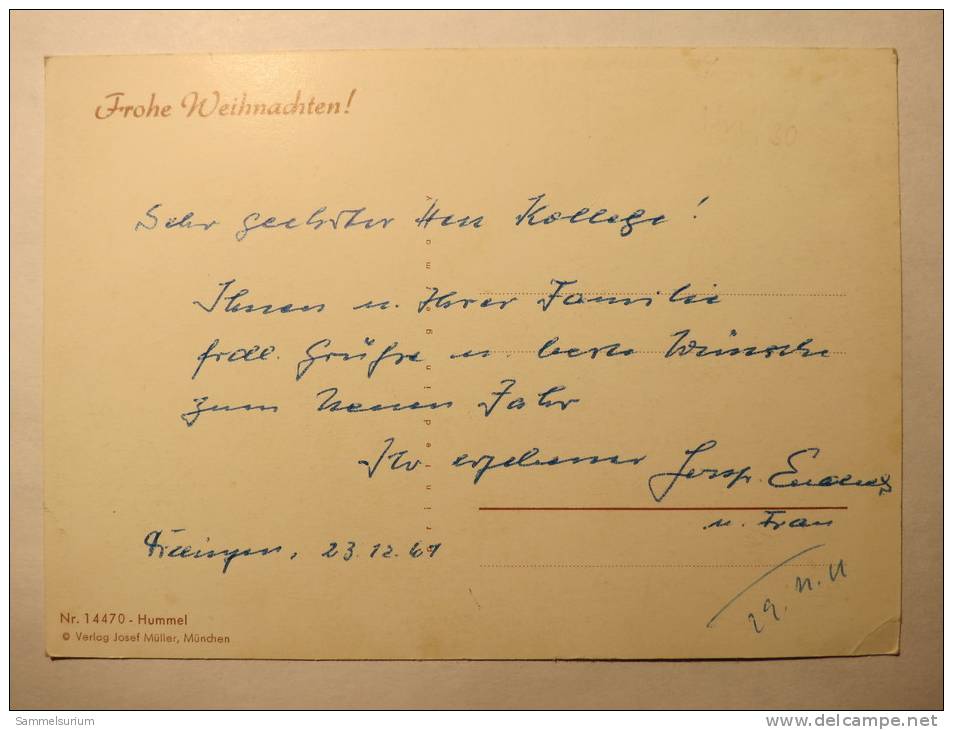 Frohe Weihnachten!
Sehr geehrter Herr Kollege!
Ihnen u. Ihrer Familie
frdl. Grüße u. beste Wünsche
zum Neuen Jahr
Ihr ergebener Josef
u. Frau
23.12.61
Nr. 14470 - Hummel
© Verlag Josef Müller, München
Sammelsurium
www.delcampe.net